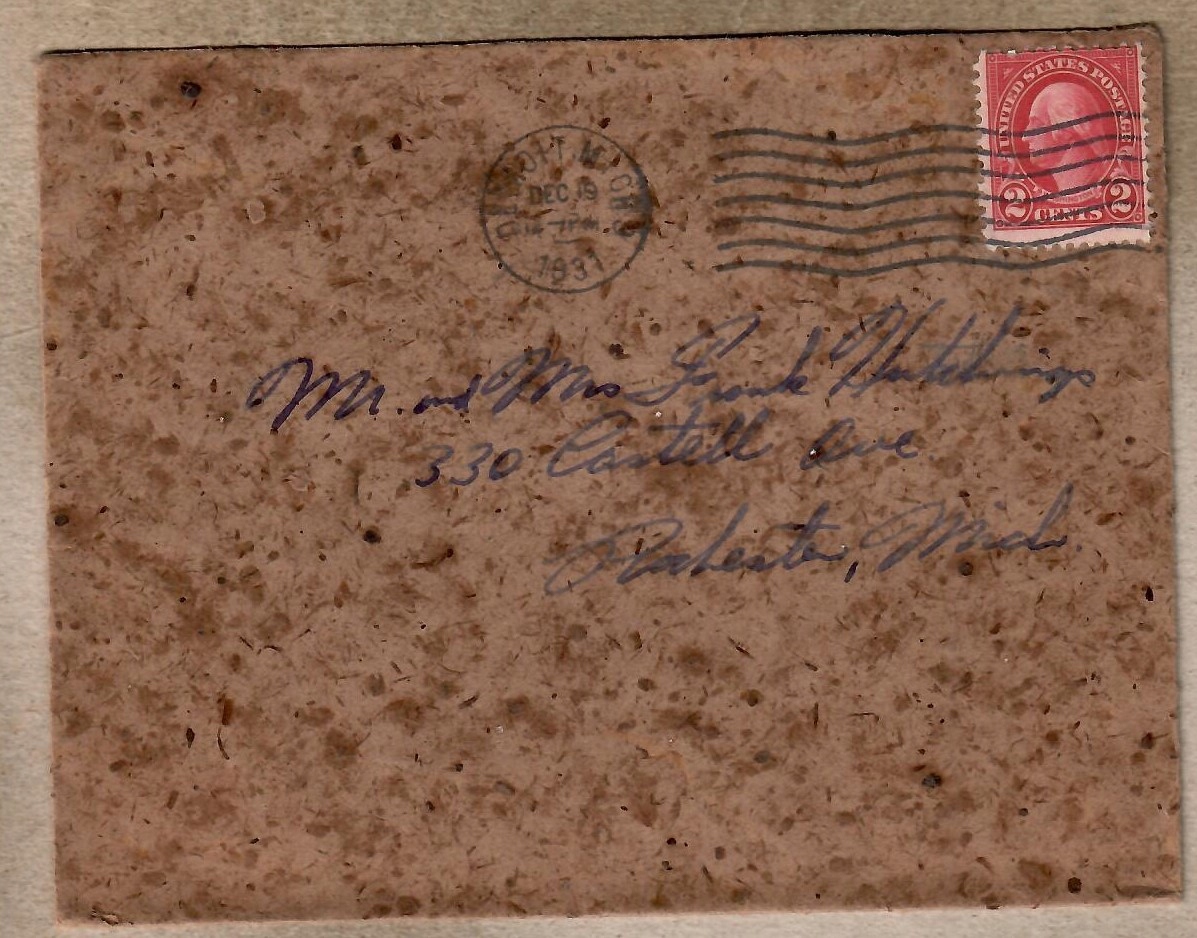 DETROIT, MICH.
DEC 19
12 - PM
1931
UNITED STATES POSTAGE
2 CENTS 2
Mr. and Mrs Frank Hutchings
330 Castell Ave.
Rochester, Mich.